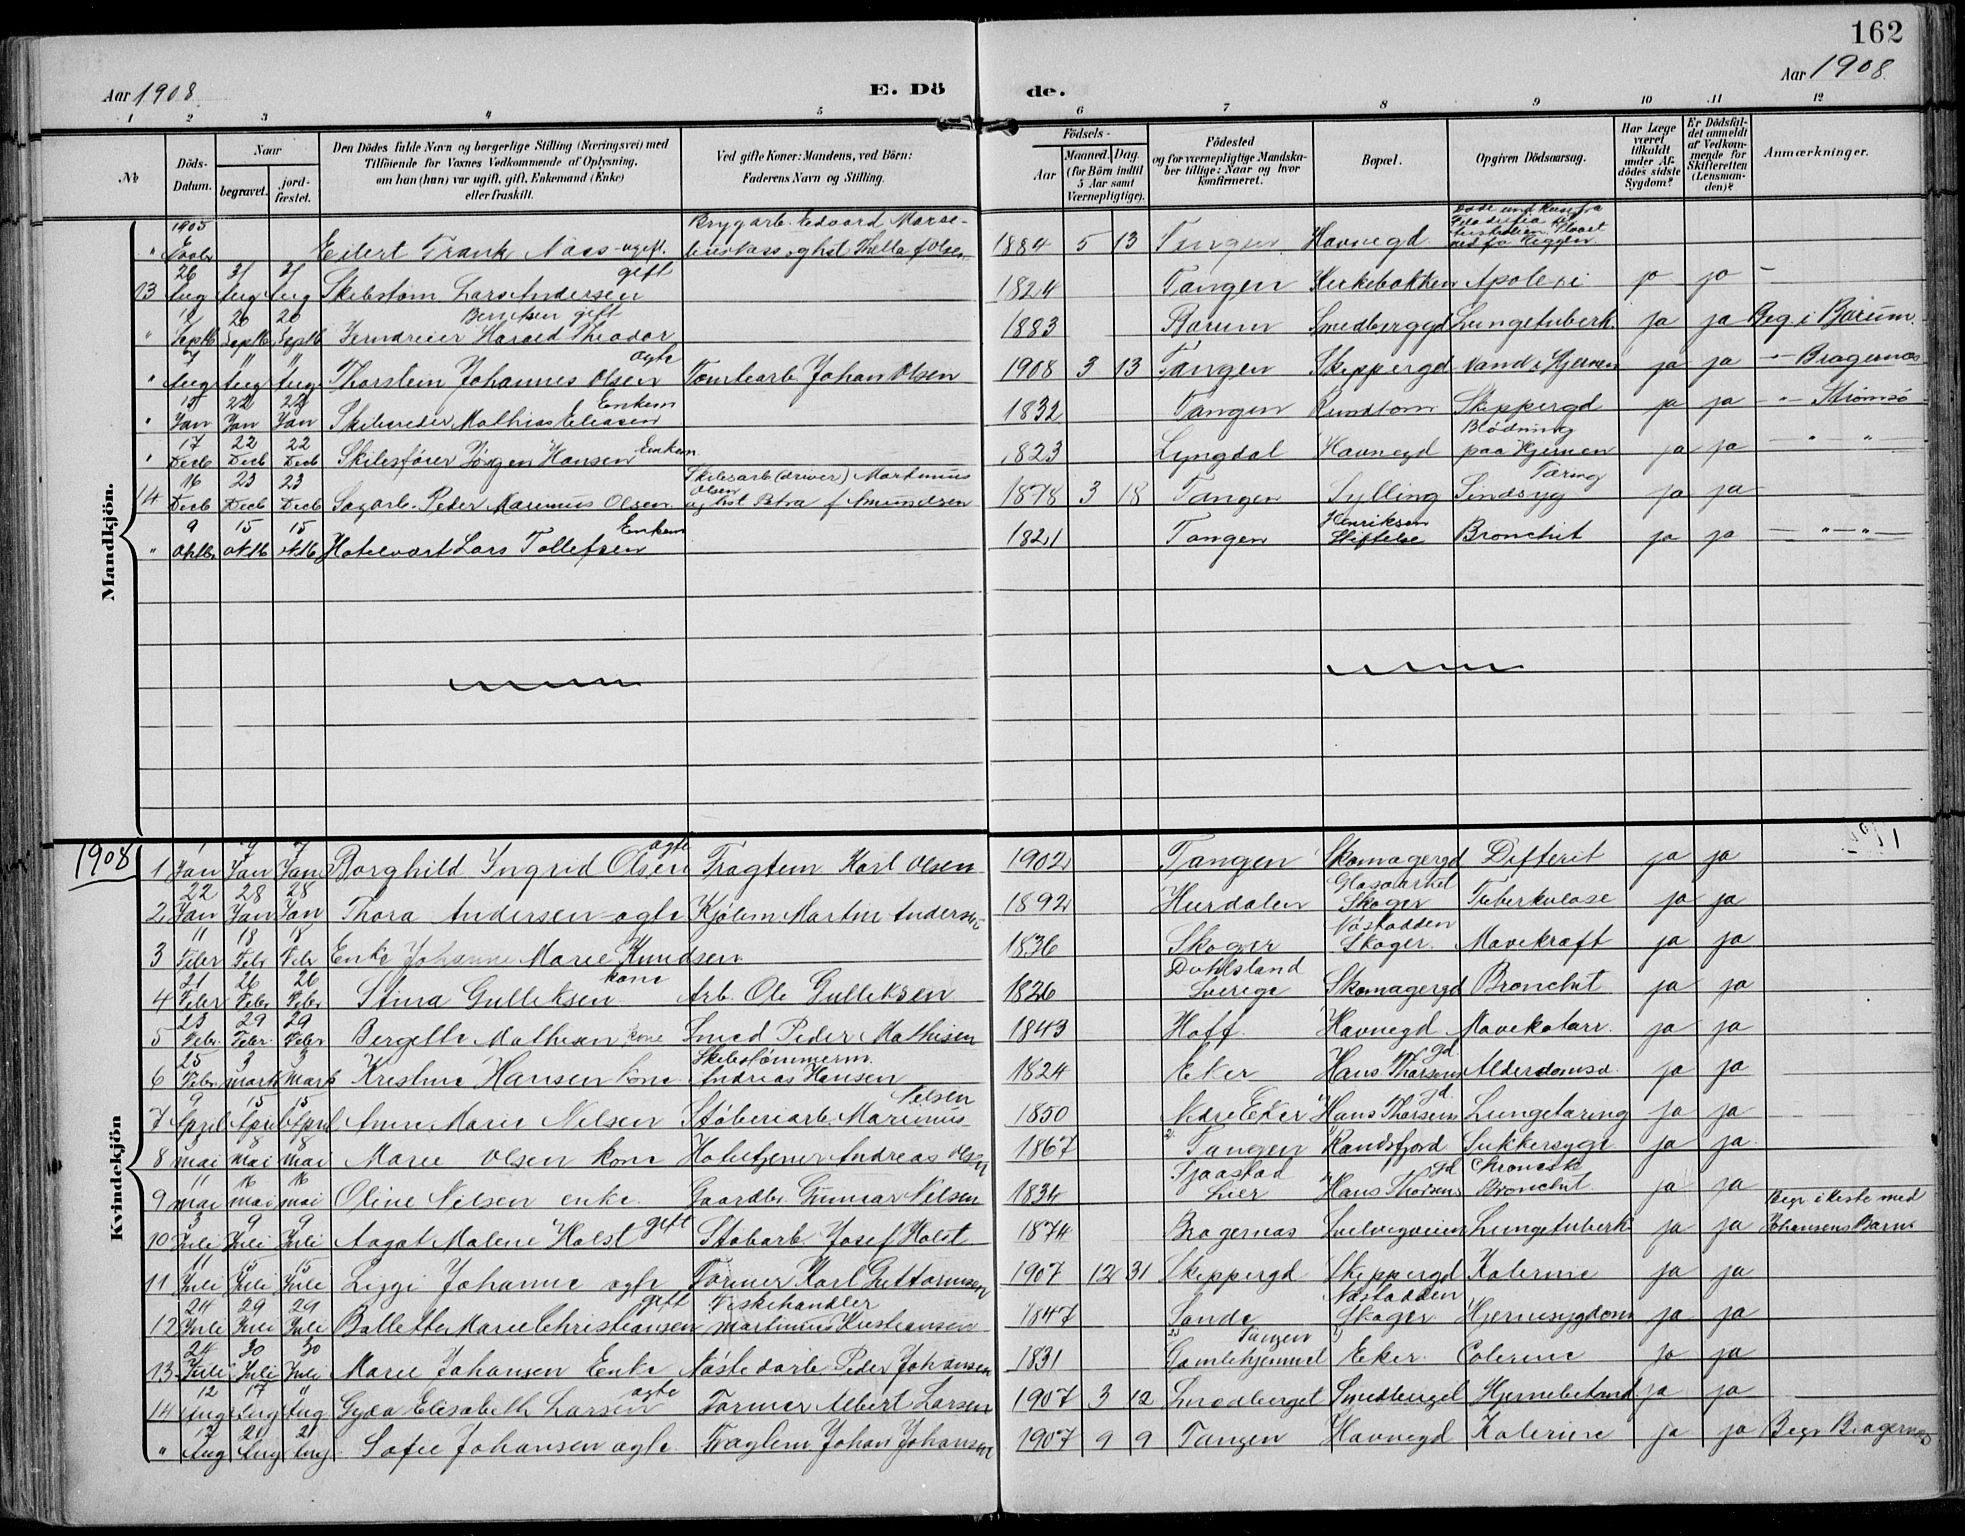 162
Aar 1908.
E. Dö
de.
Aar 1908.
1 2 3 4 5 6 7 8 9 10 11 12
№
Döds-Datum.
Naar
begravet.
jord-fæstet.
Den Dödes fulde Navn og borgerlige Stilling (Næringsvei) med
Tilföiende for Voxnes Vedkommende af Oplysning,
om han (hun) var ugift, gift, Enkemand (Enke)
eller fraskilt.
Ved gifte Koner: Mandens, ved Börn:
Faderens Navn og Stilling.
Födsels-
Aar
Maaned. Dag.
(for Börn indtil
5 Aar samt
Værnepligtige).
Födested
og for værnepligtige Mandska-
ber tillige: Naar og hvor
konfirmeret.
Bopæl.
Opgiven Dödsaarsag.
Har Læge
været
tilkaldt
under Af-
dödes sidste
Sygdom?
Er Dödsfal-
det anmeldt
af Vedkom-
mende for
Skifteretten
(Lensman-
den)?
Anmærkninger.
Mandkjön.
" 1905 Eilert Frank Næss ugift. Brygarb. Edvard 1884 5 13 Tangen Havnegd
13 26 Aug 31 Aug 31 Aug Skibstöm Lars Andersen gift 1824 Tangen Herkebakken Apolexi ja ja –
" Septb 20 Septb 20 Septb Jerndreier Harald Theodor Berntsen gift 1883 Bærum Smedberggd Lungetuberk. ja ja Beg i Bærum.
" 7 Aug " Aug " Aug Thorstein Johannes Olsen ægte Tomtearb Johan Olsen 1908 3 13 Tangen Skippergd Vand i Hjernen ja ja –"– Bragernæs
" 15 Jan 22 Jan 22 Jan Skibsreder Mathias Eliasen Enkem 1832 Tangen Rundtom Skippergd ja ja –"– Strömsö
" 17 Decb 22 Decb 22 Decb Skibsförer Jörgen Hansen Enkem. 1823 Lyngdal Havnegd Blödning paa Hjernen ja ja – " – "
14 16 Decb 23 Decb 23 Decb Sagarb. Peder Marinius Olsen Skibsarb (driver) Martinius Olsen og hst Petra f Amundsen 1878 3 18 Tangen Sylling Sindsyg Tæring ja ja
" 9 Oktb 15 Oktb 15 Oktb Hotelvært Lars Tollefsen Enkem 1821 Tangen Henriksens Stiftelse Bronchit ja ja – " – " –
Kvindekjön
1908
1 Jan Jan 7 Jan Borghild Ingrid Olsen ægte Fragtem Karl Olsen 1902 Tangen Skomagergd Difterit ja ja
2 22 Jan 28 Jan 28 Jan Thora Andersen ægte Kjölem Martin Andersen 1892 Hurdalen Glassarket Skoger Tuberkulose ja ja
3 11 Febr 18 Febr 18 Febr Enke Johanne Marie Knudsen 1836 Skoger Nöstodden Skoger. Mavekræft ja ja
4 21 Febr 26 Febr 26 Febr Stina Gulliksen kone Arb. Ole Gulliksen 1826 Dahlsland Sverige Skomagergd Bronchit ja ja
5 23 Febr. 29 Febr. 29 Febr Bergitte Mathisen kone Smed Peder Mathisen 1843 Hoff. Havnegd Mavekatarr. ja ja
6 25 Febr 3 marts 3 Marts Kristine Hansen kone Skibstömmerm. Andreas Hansen 1824 Eker Hans Thorsens gd Alderdomss. ja ja
7 9 April 15 April 15 April Anne Marie Nilsen Stöberiarb. Marinius Nelsen 1850 Nedre Eker Hans Thorsens gd. Lungetæring ja ja
8 3 mai 8 mai 8 mai Marie Olsen kone Hoteltjener Andreas Olsen 1867 Tangen Randsfjord Sukkersyge ja ja
9 11 mai 16 mai 16 mai Oline Nilsen enke Gaardbr. Gunnar Nilsen 1834 Lier Hans Thorsens gd Chronisk Bronchit. ja ja
10 3 Juli 9 Juli 9 Juli Aagot Malene Holst gift Stöbarb. Josef Holst 1874 Bragernæs Lungetuberk ja ja Begr. i kiste med Johansens Barn
11 11 Juli 15 Juli 15 Juli Lizzi Johanne ægte Former Karl Guttormsen 1907 12 31 Skippergd Skippergd Kolerine ja ja
12 24 Juli 29 Juli 29 Juli Bollette Marie Christiansen gift Fiskehandler Martinius Kristiansen 1847 Sande Nöstodden Skoger Hjernesygdom ja ja
13 24 Juli 30 Juli 30 Juli Marie Johansen Enke Nöstedarb. Peder Johansen 1831 Gamlehjemmet Tangen Eker. Colerine ja ja
14 12 Aug 17 Aug " Aug Gyda Elisabeth Larsen ægte Former Albert Larsen 1907 3 12 Smedberget Smedberget Hjernebetænd. ja ja
" 17 Aug 21 Aug 21 Aug Sofie Johansen ægte Fragtem Johan Johansen 1907 9 9 Tangen Havnegd Kolerine ja ja Begr Bragernæs